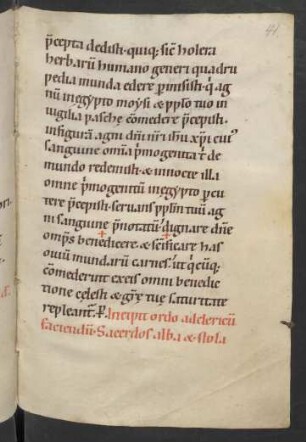 41.
p̄cepta dedisti· quiq; sic̄ holera
herbarū humano generi quadru
pedia munda edere p̄misisti· q̇ ag
nū inęgypto moysi & pp̄lo tuo in
uigilia paschę com̄edere p̄cepisti·
in figurā agni dn̄i nr̄i ihū xp̄i cui᾽
sanguine om̄ia p̄mogenita t̄ de
mundo redemisti· & innocte illa
omne p̄mogenitū inęgypto p̱cu
tere p̄cepisti· seruans pp̄lm̄ tuū· ag
ni sanguine p̄notatū· dignare dn̄e
om̄ps benedicere & sc̄ificare has
ouiū mundarū carnes· ut q̇cūq;
com̄ederint ex eis omni benedic
tione cęlesti & gr̄ę tuę saturitate
repleant᷑. P̱. Incipit ordo ad clericū
faciendū· Sacerdos alba & stola